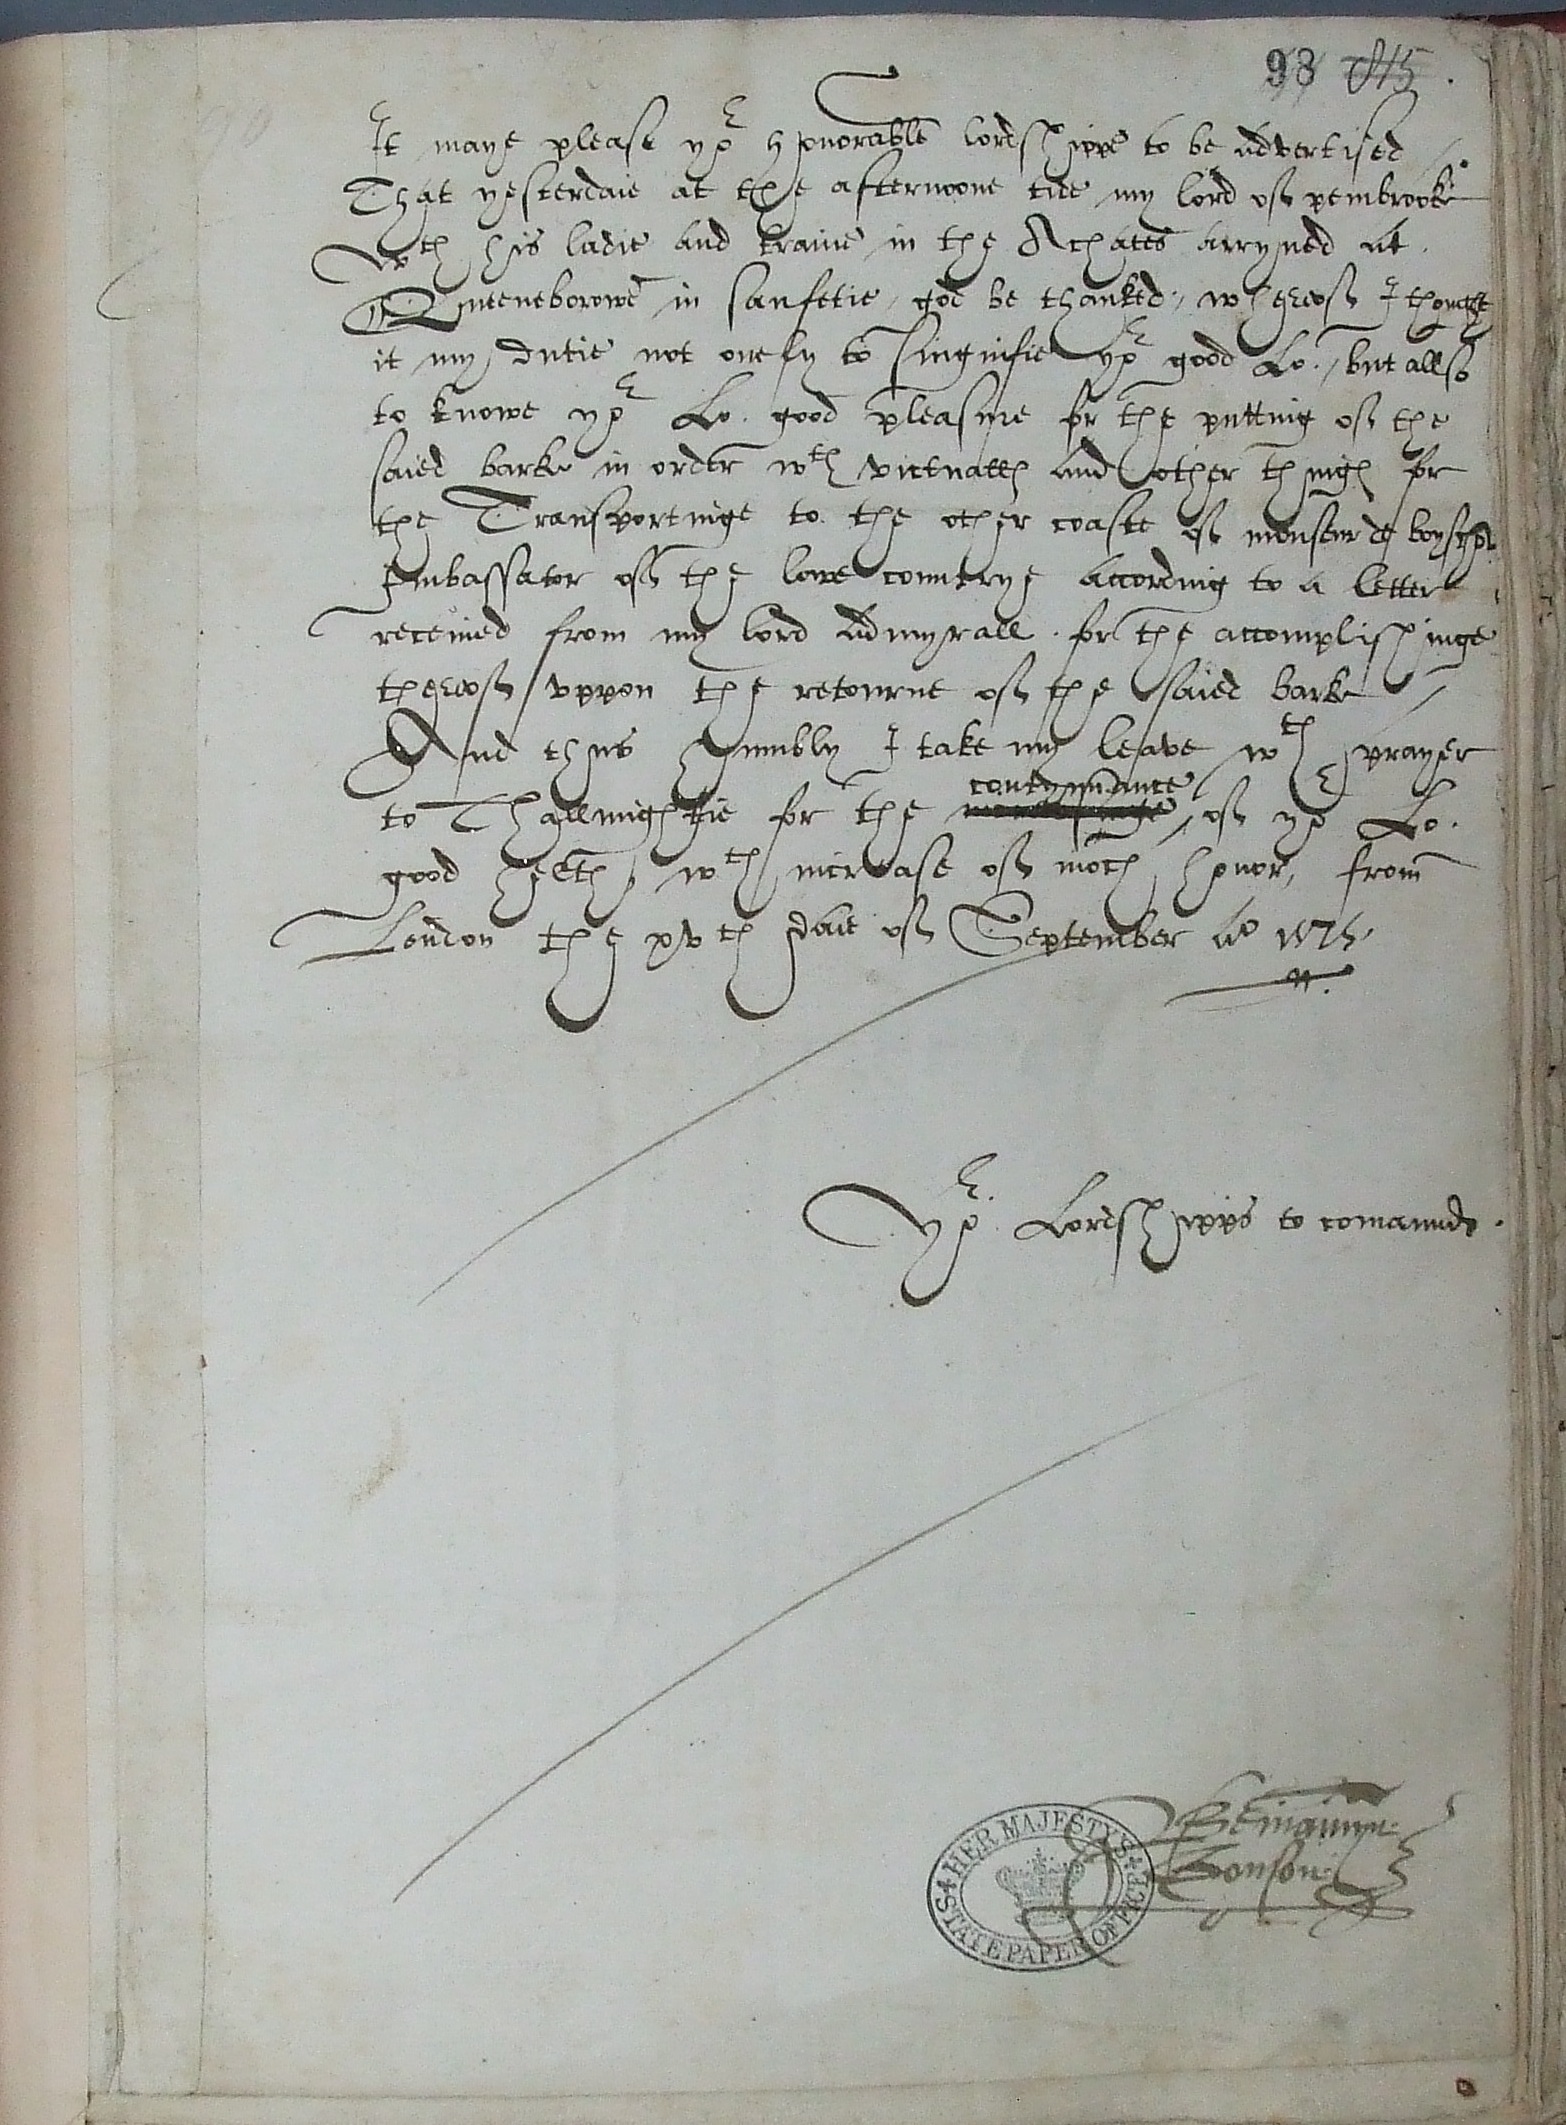 98 815
It maye please yor honorable lordshippe to be advertised
That yesterdaie at the afternoone tide my lord of pembrooke
wth his ladie and traine in the Achates arryued at
Queeneborowe in saufetie, god be thanked, wherof I thought
it my dutie not onely to singnifie yor good Lo., but allso
to knowe yor Lo. good pleasure for the putting of the
saied barke in order wth victualles and other thinges for
the Transportinge to the other coaste of monseur de boyschot
Embassator of the lowe countrye according to a letter
receiued from my lord Admyrall for the accomplishinge
therof vppon the retourne of the saied barke
And thus humbly I take my leave wth prayer
to Thallmightie for the contynuance of yor Lo.
good helth, wth increase of moch honor, from
London the xvth daie of September Ao 1575
yor Lordshipps to comaunde.
Beniamyn
Gonson
HER MAJESTY'S STATE PAPER OFFICE